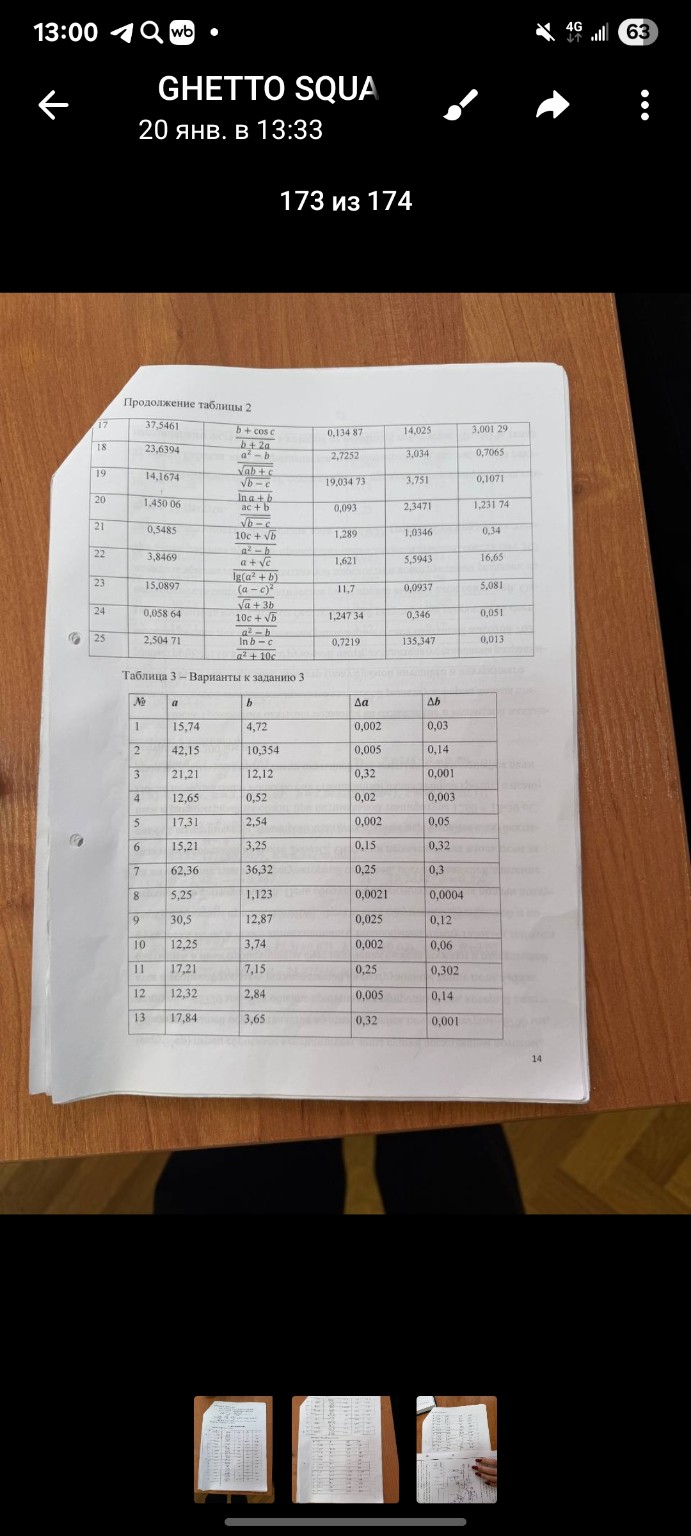 13:00 wb 4G 63
GHETTO SQUA
20 янв. в 13:33
173 из 174
Продолжение таблицы 2
17 37,5461 b + cos c / b + 2a 0,134 87 14,025 3,001 29
18 23,6394 a² − b / √ab + c 2,7252 3,034 0,7065
19 14,1674 √b − c / ln a + b 19,034 73 3,751 0,1071
20 1,450 06 ac + b / √b − c 0,093 2,3471 1,231 74
21 0,5485 10c + √b / a² − b 1,289 1,0346 0,34
22 3,8469 a + √c / lg(a² + b) 1,621 5,5943 16,65
23 15,0897 (a − c)² / √a + 3b 11,7 0,0937 5,081
24 0,058 64 10c + √b / a² − b 1,247 34 0,346 0,051
25 2,504 71 ln b − c / a² + 10c 0,7219 135,347 0,013
Таблица 3 – Варианты к заданию 3
№ a b Δa Δb
1 15,74 4,72 0,002 0,03
2 42,15 10,354 0,005 0,14
3 21,21 12,12 0,32 0,001
4 12,65 0,52 0,02 0,003
5 17,31 2,54 0,002 0,05
6 15,21 3,25 0,15 0,32
7 62,36 36,32 0,25 0,3
8 5,25 1,123 0,0021 0,0004
9 30,5 12,87 0,025 0,12
10 12,25 3,74 0,002 0,06
11 17,21 7,15 0,25 0,302
12 12,32 2,84 0,005 0,14
13 17,84 3,65 0,32 0,001
14